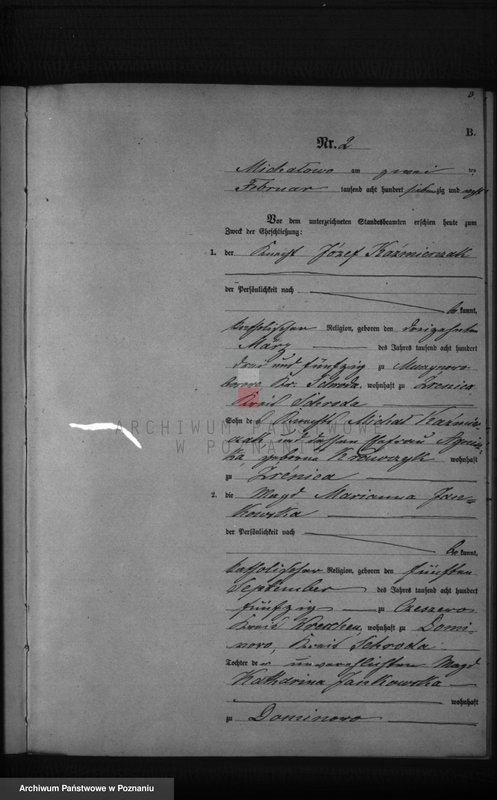 B.
Nr. 2
Michałowo am zwei ten
Februar tausend acht hundert siebenzig und acht
Vor dem unterzeichneten Standesbeamten erschien heute zum
Zweck der Eheschließung:
1. der Knecht Józef Kaźmierczak
der Persönlichkeit nach
be kannt,
katholischer Religion, geboren den dreizehnten
März des Jahres tausend acht hundert
drei und fünfzig zu
Kr. Schroda, wohnhaft zu Zrenica
Kreis Schroda
Sohn des Knechts Michał Kaźmier-
czak und dessen Ehefrau Agniesz-
ka geborne Krawczyk wohnhaft
zu Zrénica
2. die Magd Marianna Jan-
kowska
der Persönlichkeit nach
be kannt,
katholischer Religion, geboren den fünften
September des Jahres tausend acht hundert
fünfzig zu Czeszewo
Kreis Wreschen, wohnhaft zu Domi-
nowo, Kreis Schroda
Tochter der unverehelichten Magd
Katharina Jankowska
wohnhaft
zu Dominowo
ARCHIWUM PAŃSTWOWE
W POZNANIU
Archiwum Państwowe w Poznaniu